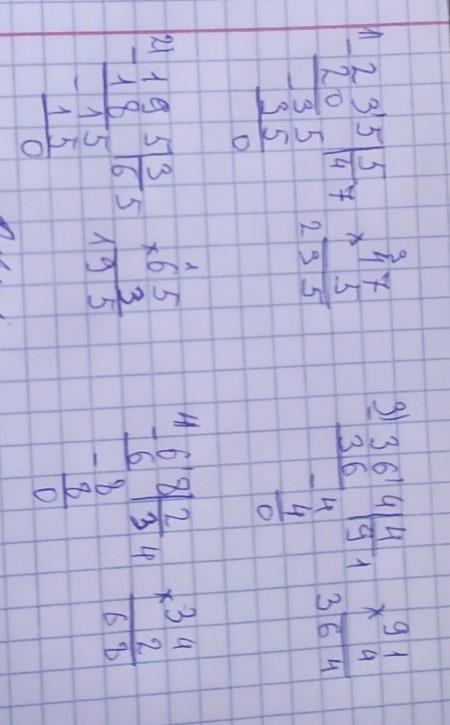 1) - 235 | 5
20 | 47
- 35
35
0
3
× 47
5
235
3) - 364 | 4
36 | 91
- 4
4
0
× 91
4
364
2) - 195 | 3
18 | 65
- 15
15
0
1
× 65
3
195
4) - 68 | 2
6 | 34
- 8
8
0
× 34
2
68